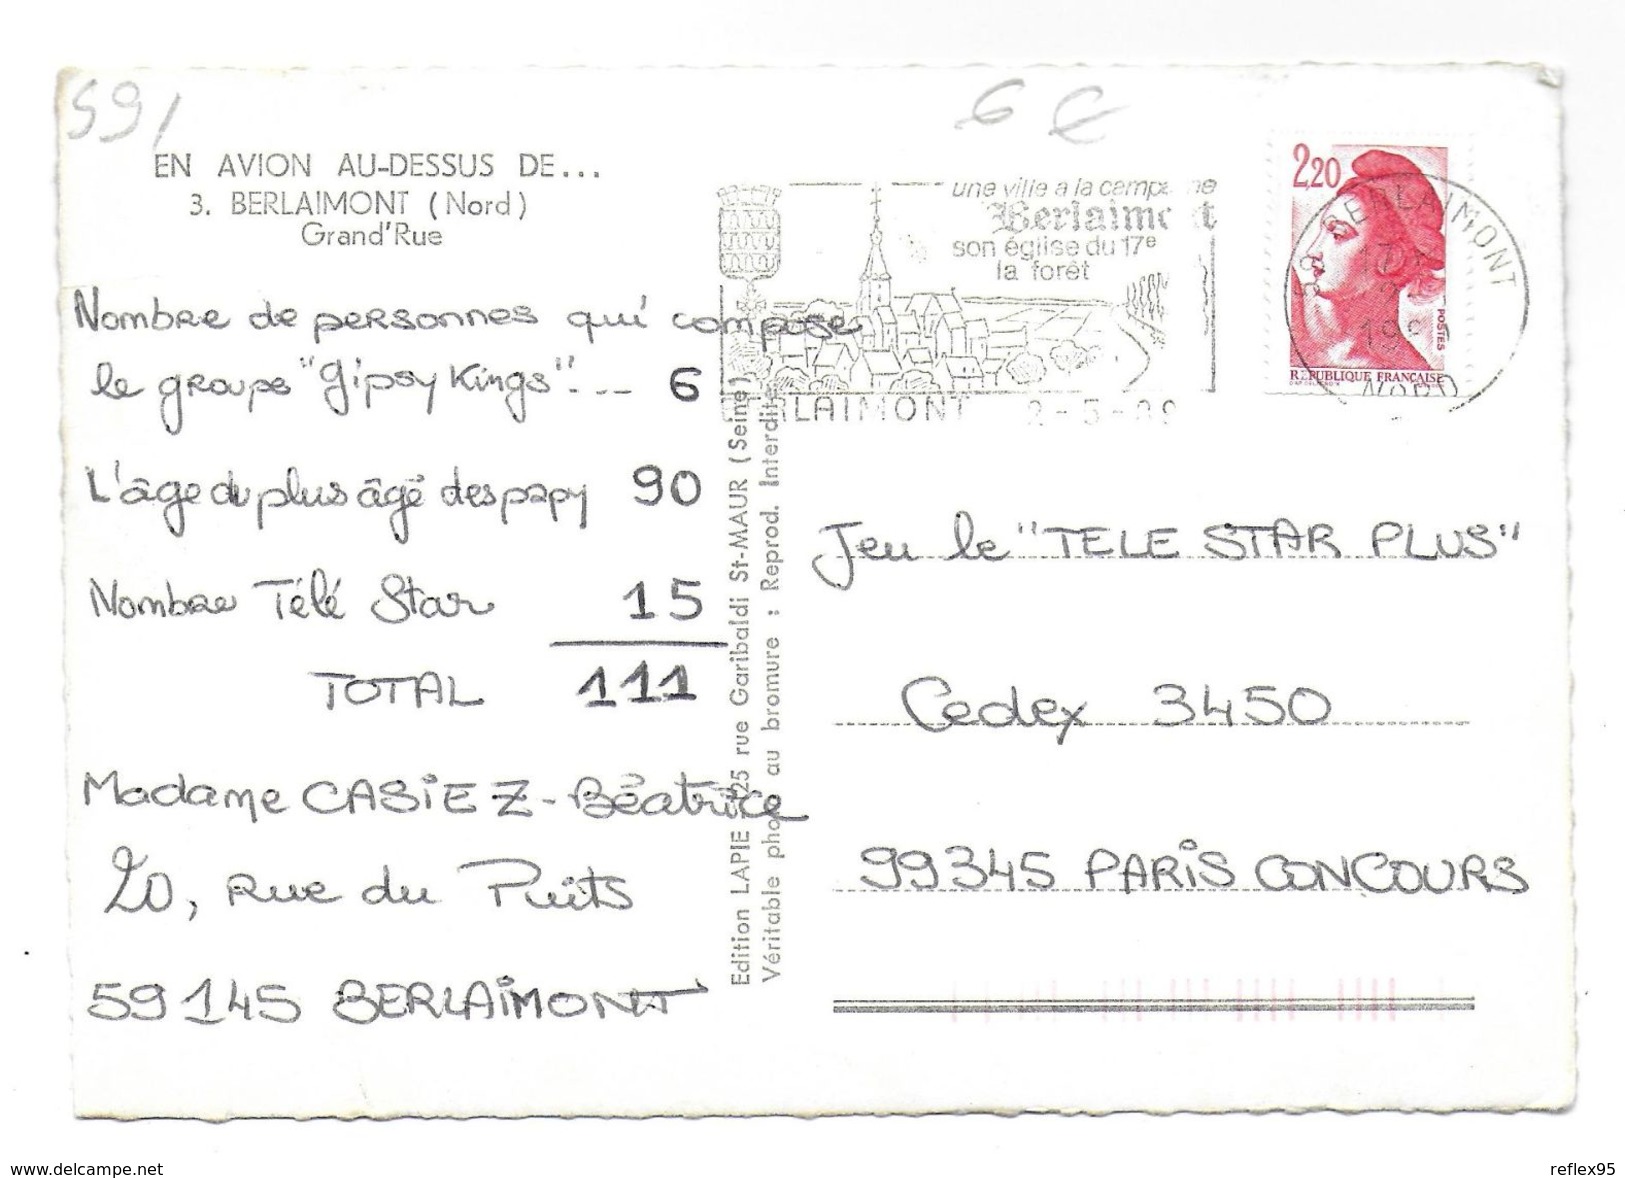 59/
6 €
EN AVION AU-DESSUS DE...
3. BERLAIMONT (Nord)
Grand'Rue
Nombre de personnes qui compose
le groupe "Gipsy Kings" --- 6
L'âge du plus âgé des papy 90
Nombre Télé Star 15
TOTAL 111
Madame CASiEZ - Béatrice
20, Rue du Puits
59145 BERLAiMONT
Edition LAPIE 125 rue Garibaldi St-MAUR (Seine)
Véritable photo au bromure : Reprod. Interdite
une ville a la campagne
Berlaimont
son église du 17e
la forêt
BERLAIMONT
2-5-89
2,20
POSTES
REPUBLIQUE FRANÇAISE
59 BERLAIMONT
NORD
Jeu le "TELE STAR PLUS"
Cedex 3450
99345 PARiS CONCOURS
www.delcampe.net
reflex95